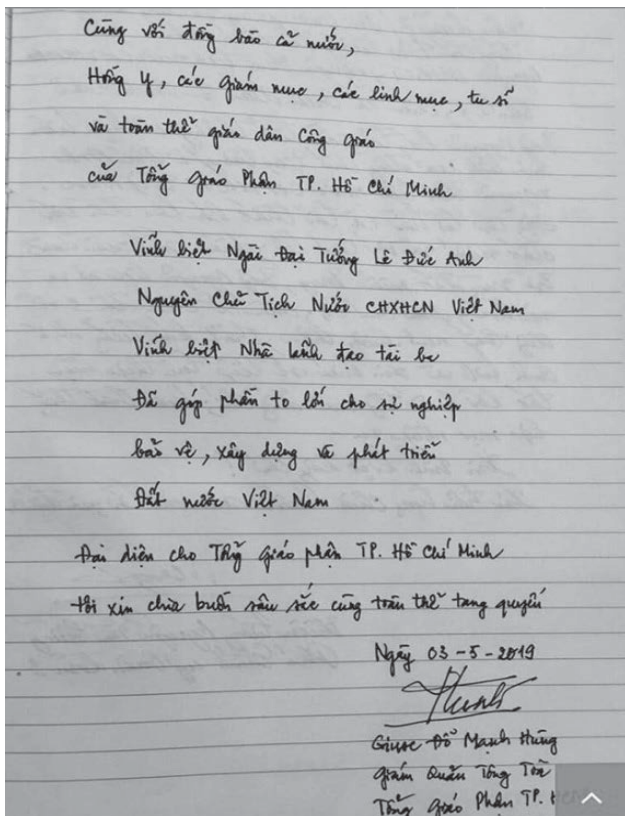 Cùng với đồng bào cả nước,
Hồng y, các giám mục, các linh mục, tu sĩ
và toàn thể giáo dân Công giáo
của Tổng Giáo Phận TP. Hồ Chí Minh
Vĩnh biệt Ngài Đại Tướng Lê Đức Anh
Nguyên Chủ Tịch Nước CHXHCN Việt Nam
Vĩnh biệt Nhà lãnh đạo tài ba
Đã góp phần to lớn cho sự nghiệp
bảo vệ, xây dựng và phát triển
Đất nước Việt Nam
Đại diện cho Tổng giáo phận TP. Hồ Chí Minh
tôi xin chia buồn sâu sắc cùng toàn thể tang quyến
Ngày 03-5-2019
Giuse Đỗ Mạnh Hùng
Giám Quản Tông Tòa
Tổng Giáo Phận TP. H